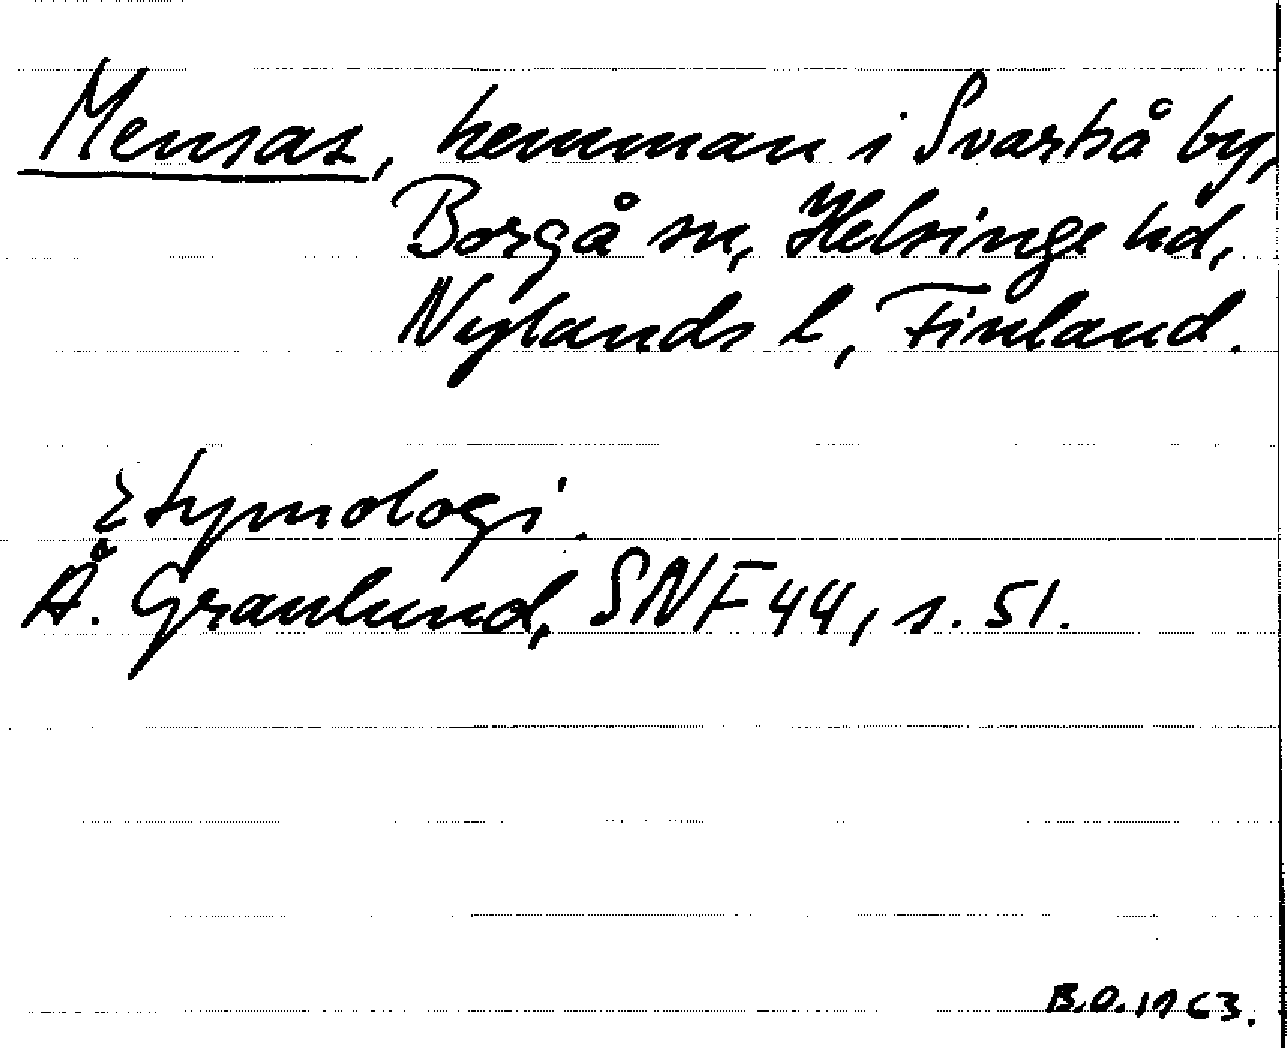 Mensas, hemman i Svartså by,
Borgå sn, Helsinge hd,
Nylands l, Finland.
Etymologi.
Å. Granlund, SNF 44, s. 51.
B.O. 1963.